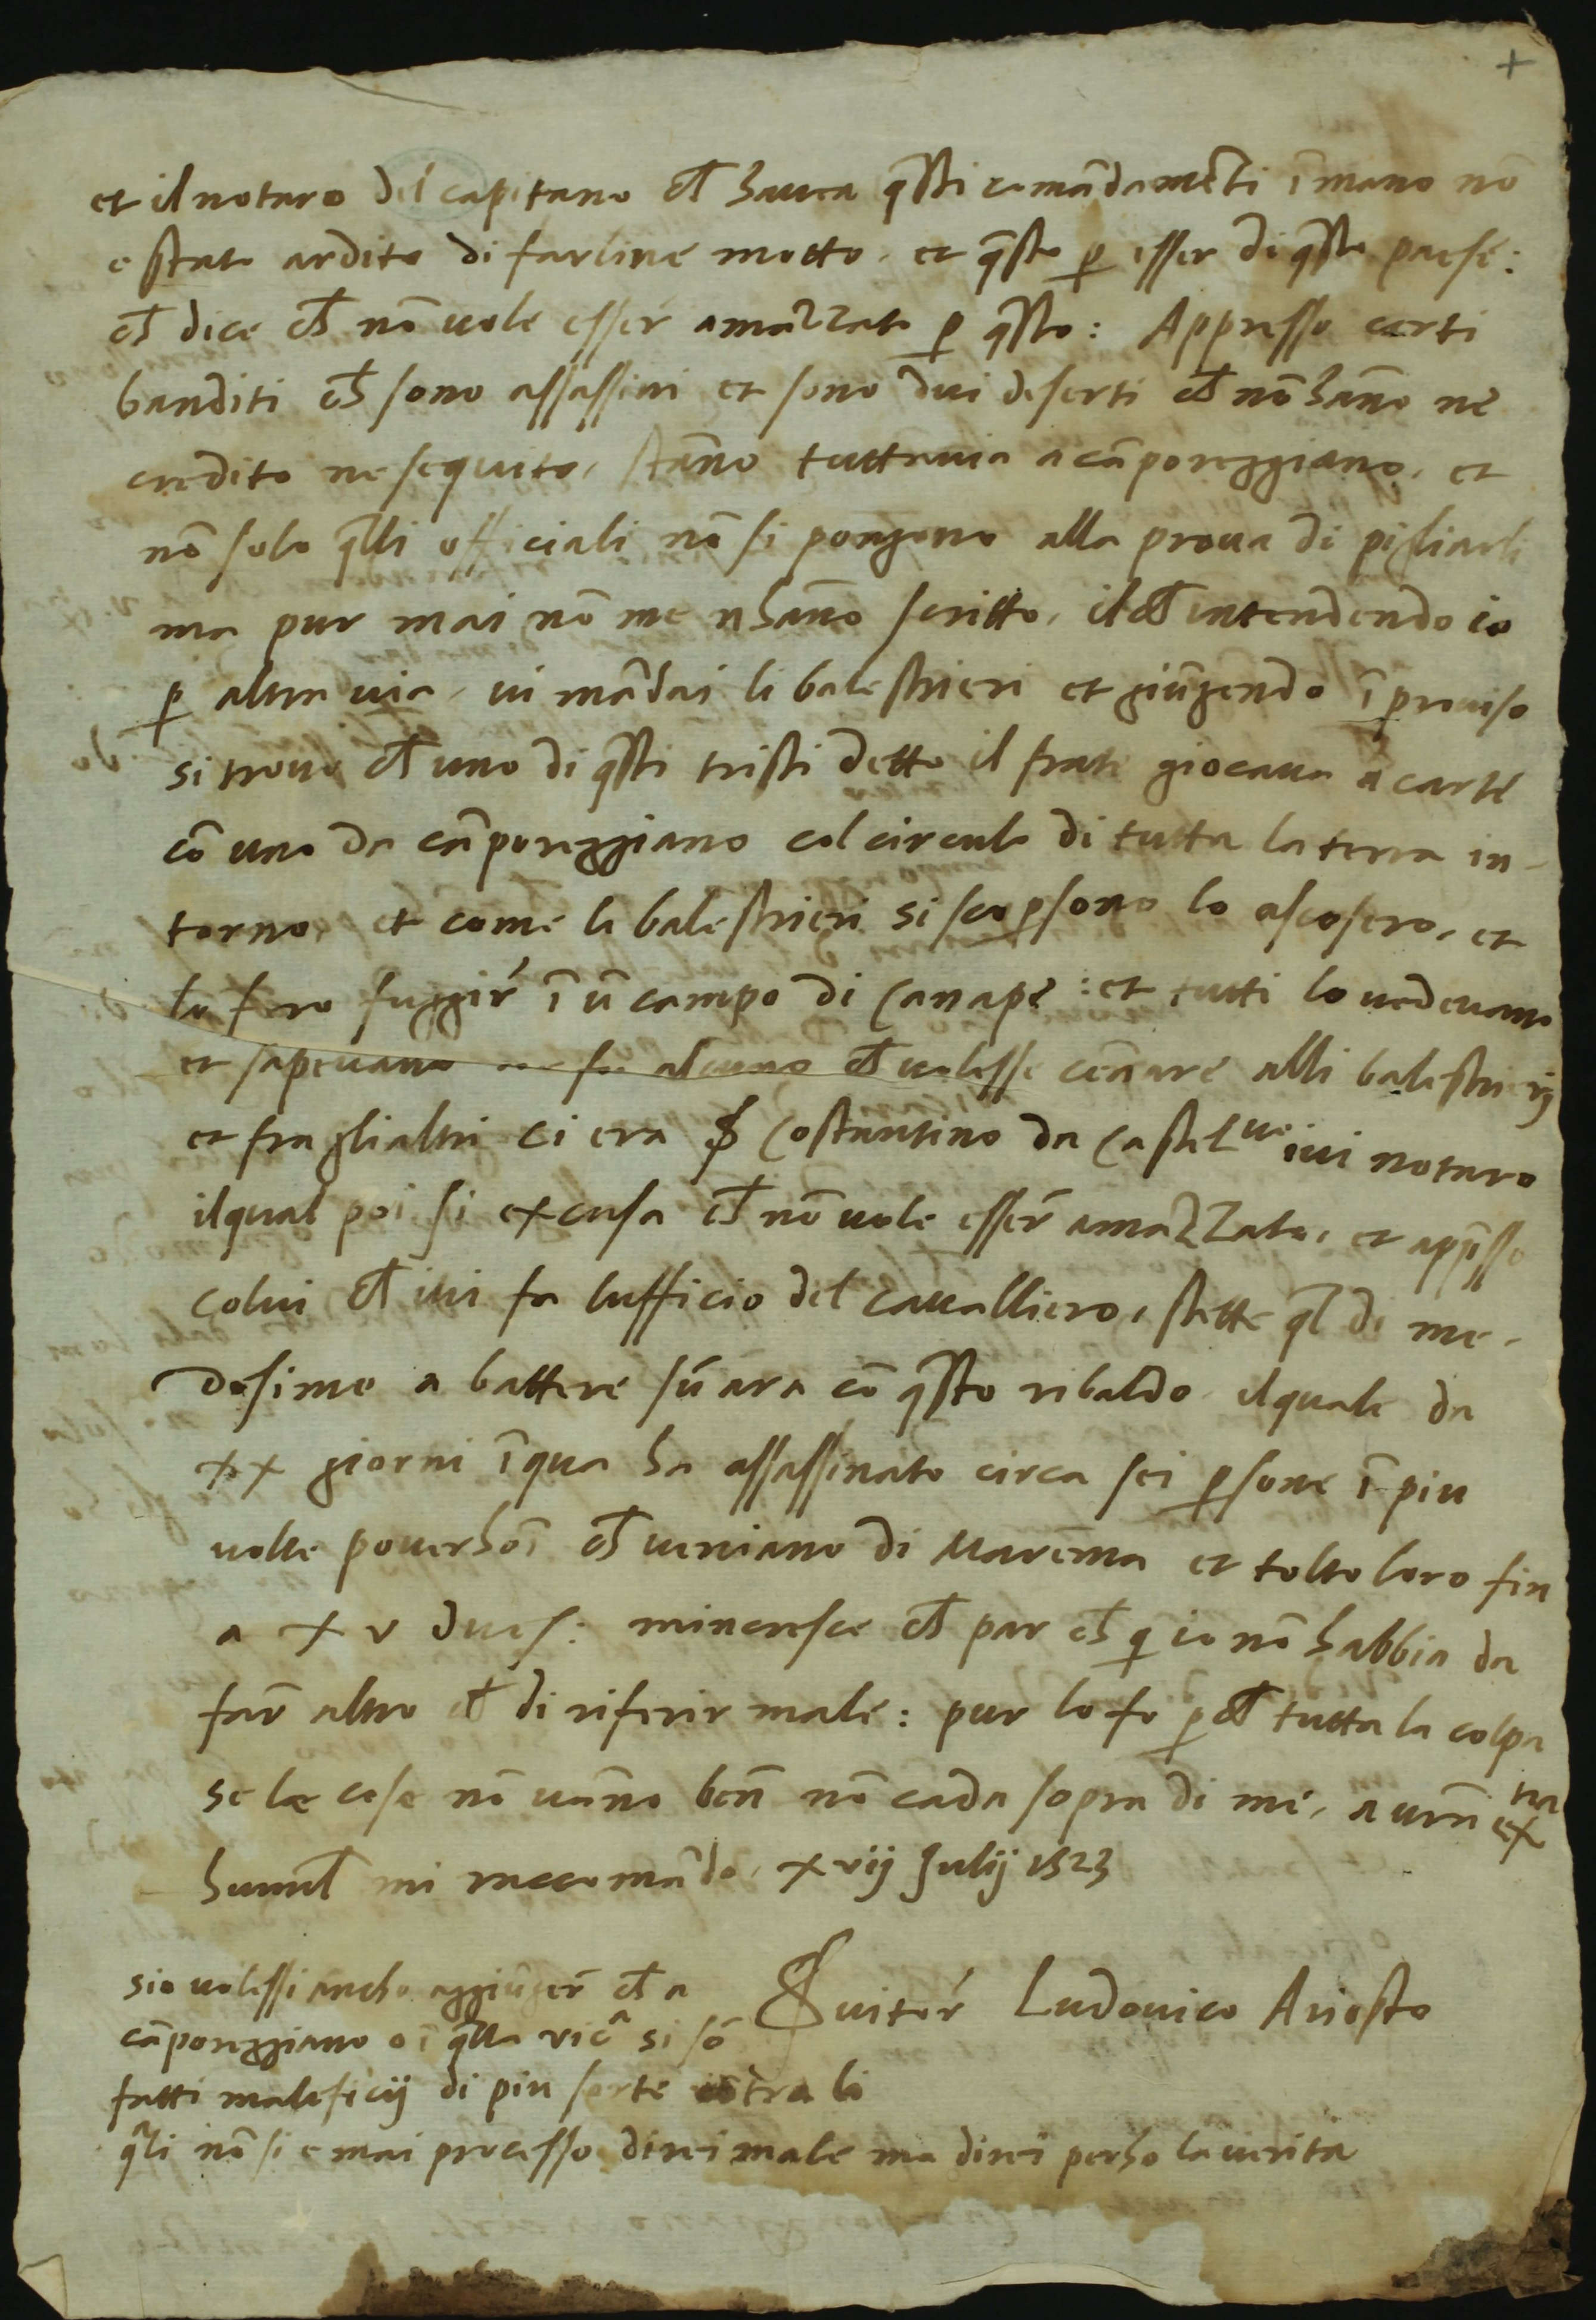 et il notaro del capitano ch̄ hauea q̄sti comādamēti ī mano nō
e stato ardito di farline motto, et q̄sto ꝑ esser di q̄sto paese:
ch̄ dice ch̄ nō uole esser amazzato ꝑ q̄sto: Appresso certi
banditi ch̄ sono assassini et sono dui deserti ch̄ nō hāno ne
credito ne sequito, stāno tuttauia a cāporeggiano, et
nō solo q̄lli officiali nō si pongono alla proua di pigliarli
ma pur mai nō me n hāno scritto, il ch̄ intendendo io
ꝑ altra uia, ui mādai li balestrieri et giūgendo īprouiso
si trouo ch̄ uno di q̄sti tristi detto il frate giocaua a carte
cō uno da cāporeggiano col circulo di tutta la terra in-
torno, et come li balestrieri si scoꝑsono lo ascosero, et
lo fero fuggir ī ū campo di canape: et tutti lo uedeuano
et sapeuano ne fu alcuno ch̄ uolesse cēnare alli balestrierij
et fra gli altri ci era ẞ Costantino da Castel.uo iui notaro
il qual poi si excusa ch̄ nō uole esser̄ amazzato, et app̄sso
colui ch̄ iui fa lufficio del caualliero, stette q̄l di me-
desimo a battere sū ara cō q̄sto ribaldo il quale da
xx giorni ī qua ha assassinato circa sei ꝑsone ī piu
uolte pouerhoī ch̄ ueniano di Marēma et tolto loro fin
a xv duc.: mincresce ch̄ par ch̄ q̄ io nō habbia da
far̄ altro ch̄ di riferir male: pur lo fo ꝑch̄ tutta la colpa
se le cose nō uāno ben̄ nō cada sopra di me, a urā ex.na
humil̄ mi raccomādo, xvij Julij 1523
sio uolessi ancho aggiūger̄ ch̄ a
cāporeggiano o ī q̄lla vic.a si sō
fatti maleficij di piu sorte cōtra li
q̄li nō si e mai processo direi male ma direi perho la uerita
Seruitor Ludouico Ariosto